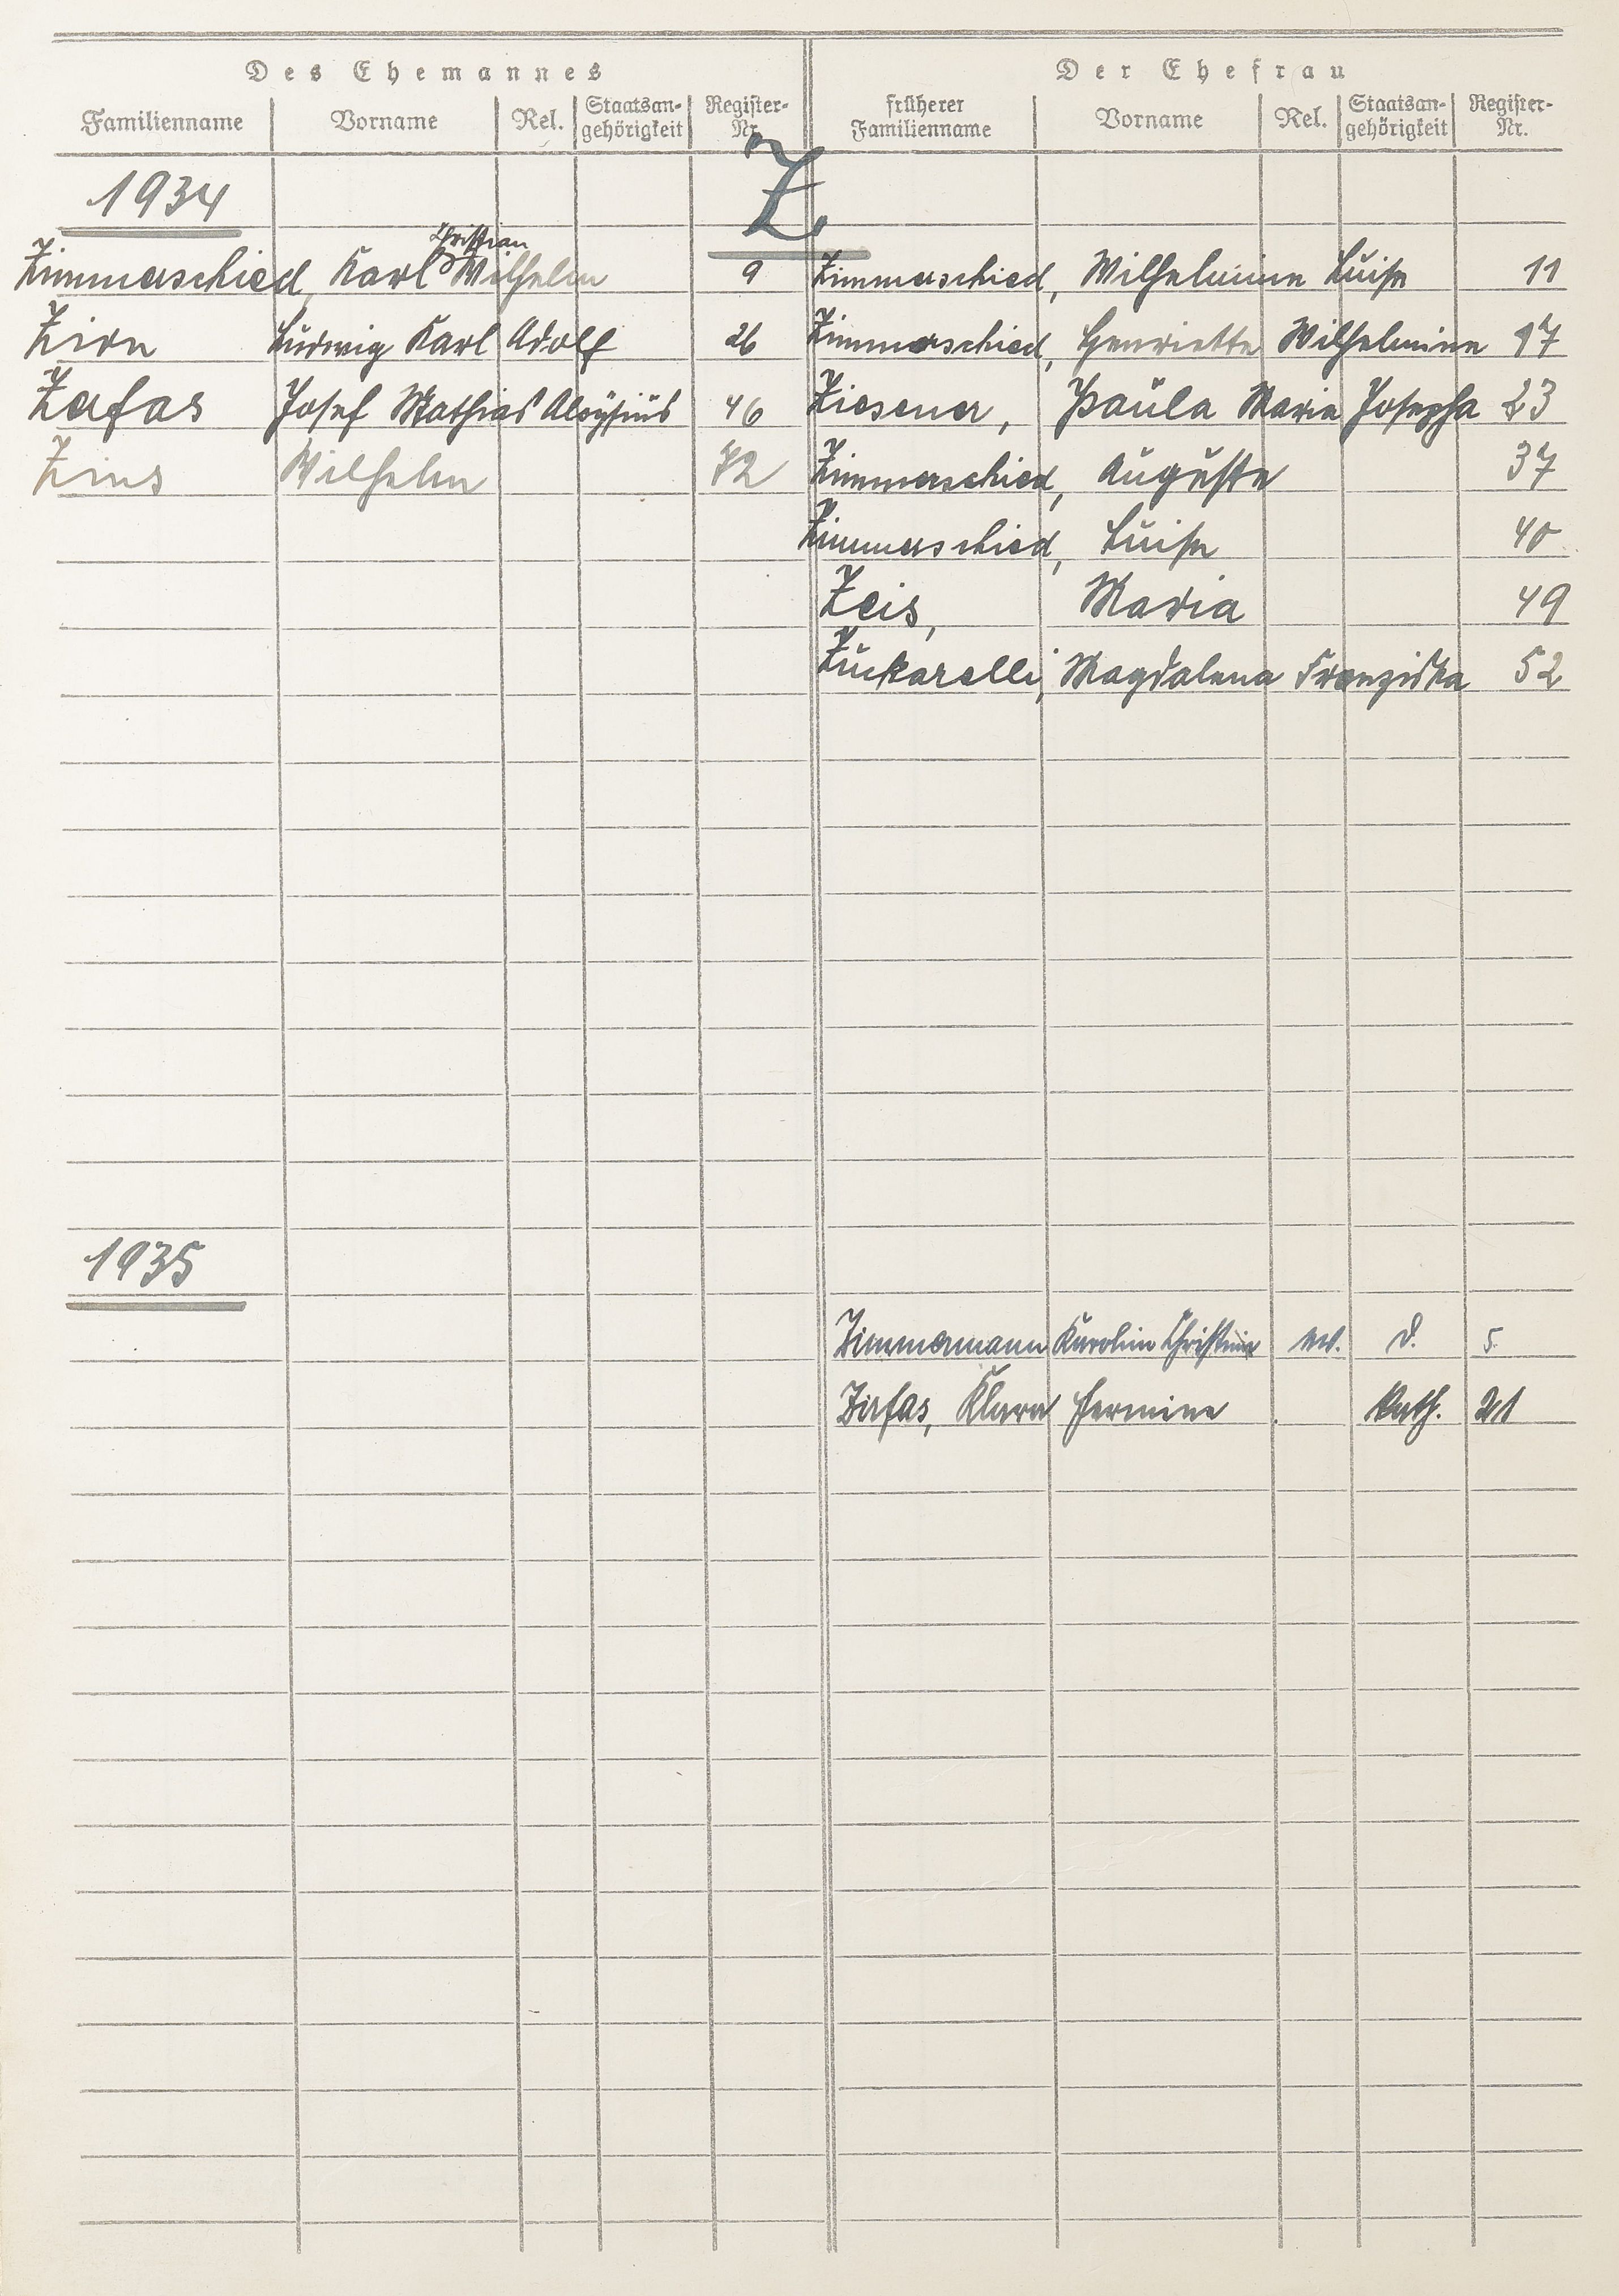 Des Ehemannes
Der Ehefrau
Familienname Vorname Rel. Staatsan-gehörigkeit Register-Nr.
früherer Familienname Vorname Rel. Staatsan-gehörigkeit Register-Nr.
Z.
1934
Christian
Zimmerschied, Karl Wilhelm 9 Zimmerschied, Wilhelmine Luise 11
Zirn Ludwig Karl Adolf 26 Zimmerschied, Henriette Wilhelmine 17
Zerfas Josef Mathias Aloysius 46 Ziesener, Paula Maria Josepha 23
Zins Wilhelm 72 Zimmerschied, Auguste 37
Zimmerschied, Luise 40
Zeis, Maria 49
Zuckarelli, Magdalena Franziska 52
1935
Zimmermann Karolin Christine ev. d. 5.
Zirfas, Klara Hermine kath. 21